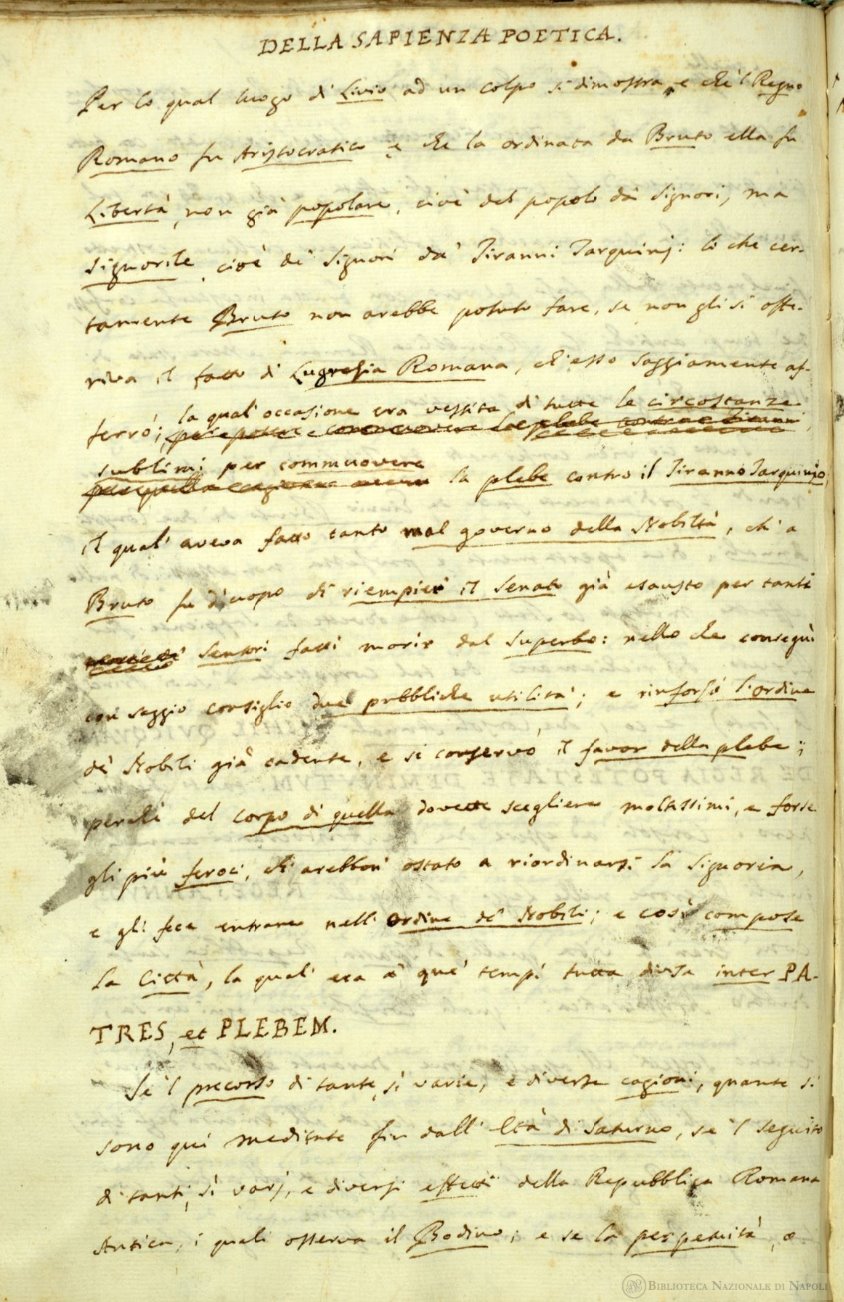 DELLA SAPIENZA POETICA.
Per lo qual luogo di Livio ad un colpo si dimostra, e che 'l Regno
Romano fu Aristocratico, e che la ordinata da Bruto ella fu
Libertà, non già popolare, cioè del popolo da' Signori, ma
Signorile, cioè de' Signori da' Tiranni Tarquinj: lo che cer-
tamente Bruto non arebbe potuto fare, se non gli si offe-
riva il fatto di Lugrezia Romana, ch'esso saggiamente af-
ferrò; la qual'occasione era vestita di tutte le circostanze
sublimi per commuovere la plebe contro il Tiranno Tarquinio,
il qual'aveva fatto tanto mal governo della Nobiltà, ch'a
Bruto fu d'uopo di riempier' il Senato già esausto per tanti
Senatori fatti morir dal Superbo: nello che conseguì
con saggio consiglio due pubbliche utilità; e rinforzò l'ordine
de' Nobili già cadente, e si conservò il favor della plebe;
perchè del corpo di quella dovette scegliere moltissimi, e forse
gli più feroci, ch'arebbon' ostato a riordinarsi la Signoria,
e gli fece entrare nell'ordine de' Nobili; e così compose
la Città, la qual'era a que' tempi tutta divisa inter PA-
TRES, et PLEBEM.
Se 'l precorso di tante, sì varie, e diverse cagioni, quante si
sono qui meditate fin dall'Età di Saturno, se 'l seguito
di tanti, sì varj, e diversi effetti della Repubblica Romana
Antica, i quali osserva il Bodino; e se la perpetuità, o
BIBLIOTECA NAZIONALE DI NAPOLI